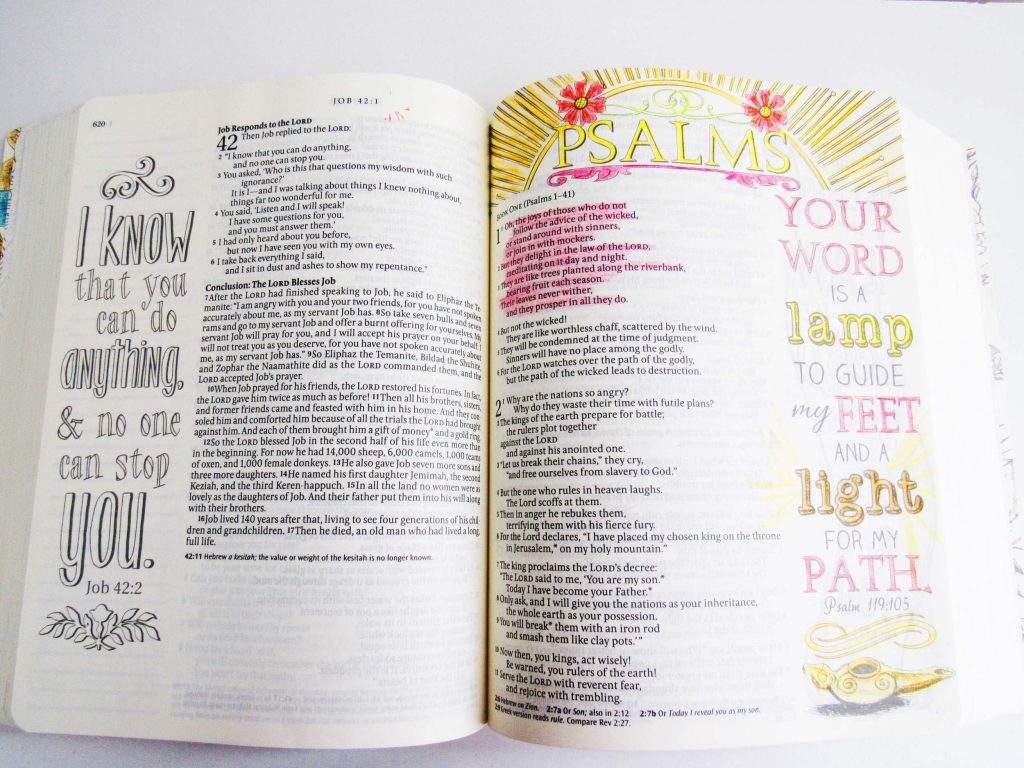 JOB 42:1
620
I KNOW
that you
can do
anything,
& no one
can stop
YOU.
Job 42:2
Job Responds to the LORD
42 Then Job replied to the LORD:
2 "I know that you can do anything,
and no one can stop you.
3 You asked, 'Who is this that questions my wisdom with such
ignorance?'
It is I—and I was talking about things I knew nothing about,
things far too wonderful for me.
4 You said, 'Listen and I will speak!
I have some questions for you,
and you must answer them.'
5 I had only heard about you before,
but now I have seen you with my own eyes.
6 I take back everything I said,
and I sit in dust and ashes to show my repentance."
Conclusion: The LORD Blesses Job
7 After the LORD had finished speaking to Job, he said to Eliphaz the Te-
manite: "I am angry with you and your two friends, for you have not spoken
accurately about me, as my servant Job has. 8 So take seven bulls and seven
rams and go to my servant Job and offer a burnt offering for yourselves. My
servant Job will pray for you, and I will accept his prayer on your behalf. I
will not treat you as you deserve, for you have not spoken accurately about
me, as my servant Job has." 9 So Eliphaz the Temanite, Bildad the Shuhite,
and Zophar the Naamathite did as the LORD commanded them, and the
LORD accepted Job's prayer.
10 When Job prayed for his friends, the LORD restored his fortunes. In fact,
the LORD gave him twice as much as before! 11 Then all his brothers, sisters,
and former friends came and feasted with him in his home. And they con-
soled him and comforted him because of all the trials the LORD had brought
against him. And each of them brought him a gift of money* and a gold ring.
12 So the LORD blessed Job in the second half of his life even more than
in the beginning. For now he had 14,000 sheep, 6,000 camels, 1,000 teams
of oxen, and 1,000 female donkeys. 13 He also gave Job seven more sons and
three more daughters. 14 He named his first daughter Jemimah, the second
Keziah, and the third Keren-happuch. 15 In all the land no women were as
lovely as the daughters of Job. And their father put them into his will along
with their brothers.
16 Job lived 140 years after that, living to see four generations of his chil-
dren and grandchildren. 17 Then he died, an old man who had lived a long,
full life.
42:11 Hebrew a kesitah; the value or weight of the kesitah is no longer known.
PSALMS
BOOK ONE (Psalms 1–41)
1 1 Oh, the joys of those who do not
follow the advice of the wicked,
or stand around with sinners,
or join in with mockers.
2 But they delight in the law of the LORD,
meditating on it day and night.
3 They are like trees planted along the riverbank,
bearing fruit each season.
Their leaves never wither,
and they prosper in all they do.
4 But not the wicked!
They are like worthless chaff, scattered by the wind.
5 They will be condemned at the time of judgment.
Sinners will have no place among the godly.
6 For the LORD watches over the path of the godly,
but the path of the wicked leads to destruction.
2 1 Why are the nations so angry?
Why do they waste their time with futile plans?
2 The kings of the earth prepare for battle;
the rulers plot together
against the LORD
and against his anointed one.
3 "Let us break their chains," they cry,
"and free ourselves from slavery to God."
4 But the one who rules in heaven laughs.
The Lord scoffs at them.
5 Then in anger he rebukes them,
terrifying them with his fierce fury.
6 For the Lord declares, "I have placed my chosen king on the throne
in Jerusalem,* on my holy mountain."
7 The king proclaims the LORD's decree:
"The LORD said to me, 'You are my son.*
Today I have become your Father.*
8 Only ask, and I will give you the nations as your inheritance,
the whole earth as your possession.
9 You will break* them with an iron rod
and smash them like clay pots.'"
10 Now then, you kings, act wisely!
Be warned, you rulers of the earth!
11 Serve the LORD with reverent fear,
and rejoice with trembling.
2:6 Hebrew on Zion. 2:7a Or Son; also in 2:12. 2:7b Or Today I reveal you as my son.
2:9 Greek version reads rule. Compare Rev 2:27.
YOUR
WORD
IS A
lamp
TO GUIDE
my FEET
AND A
light
FOR MY
PATH.
Psalm 119:105